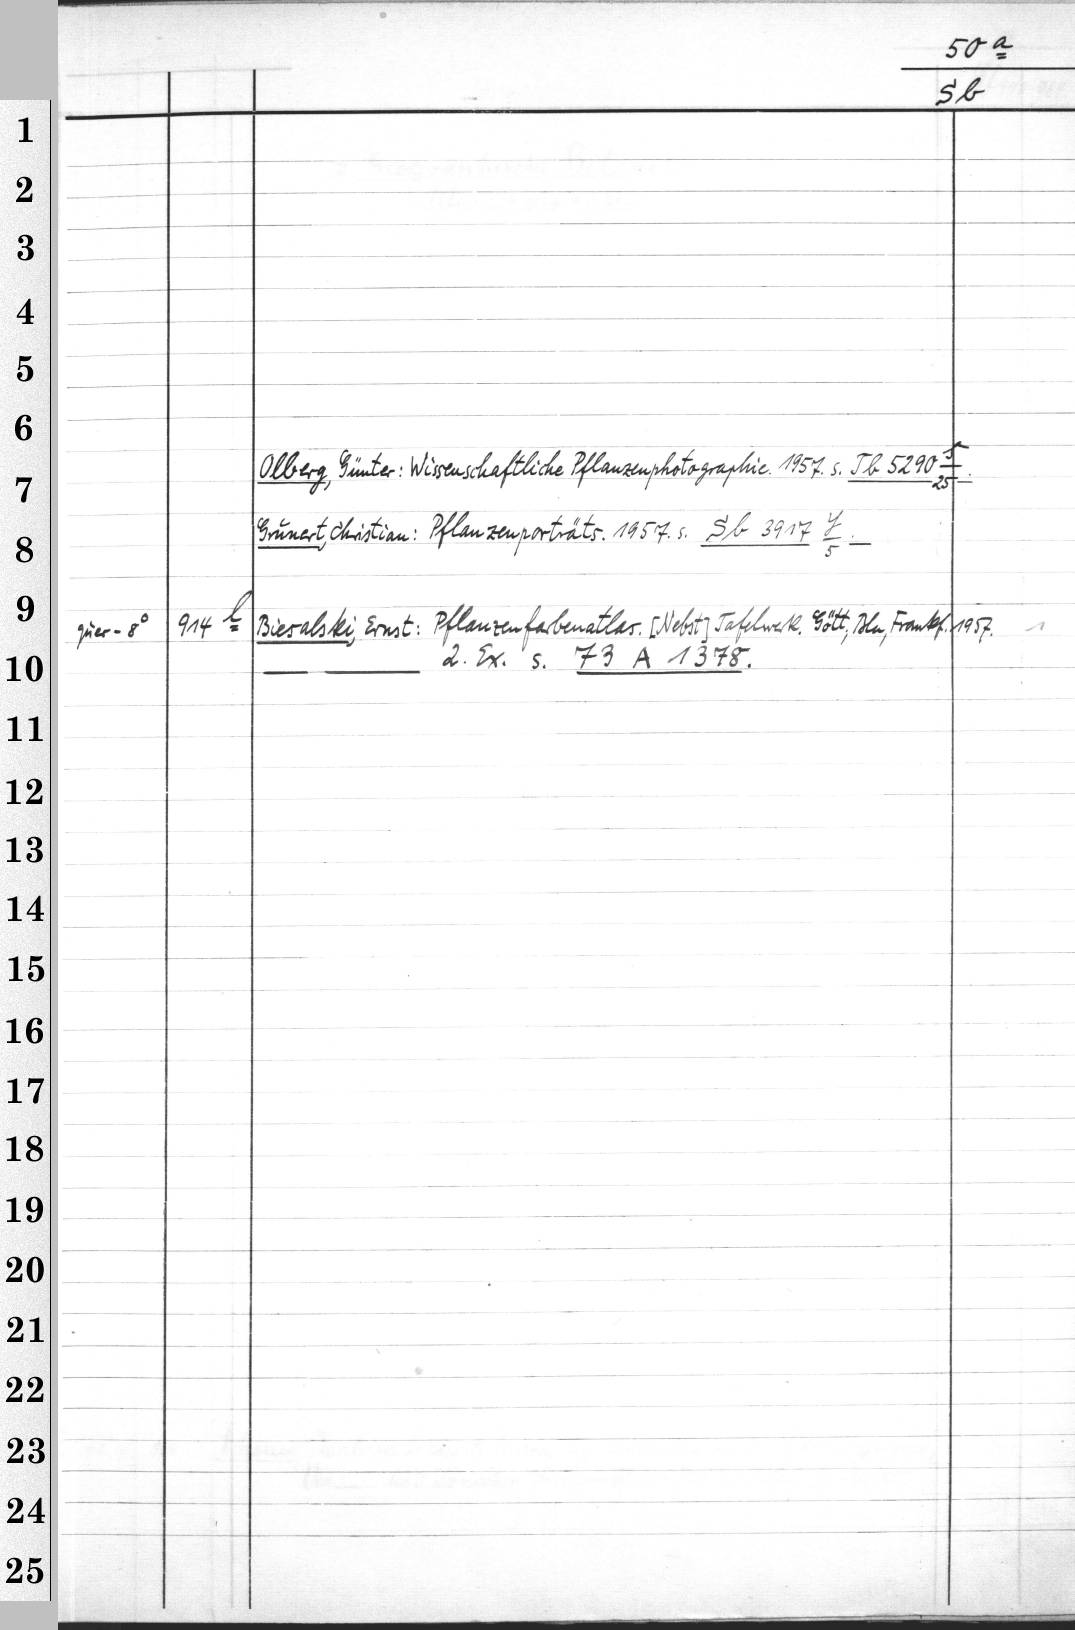 50 a
Sb
1
2
3
4
5
6
Olberg, Günter: Wissenschaftliche Pflanzenphotographie. 1957. s. Tb 5290 5/25.
7
Grunert, Christian: Pflanzenporträts. 1957. s. Sb 3917 y/5.
8
9
quer-8° 914 l Biesalski, Ernst: Pflanzenfarbenatlas. [Nebst] Tafelwerk. Gött, Bln, Frankf. 1957. 1
10
— — 2. Ex. s. 73 A 1378.
11
12
13
14
15
16
17
18
19
20
21
22
23
24
25